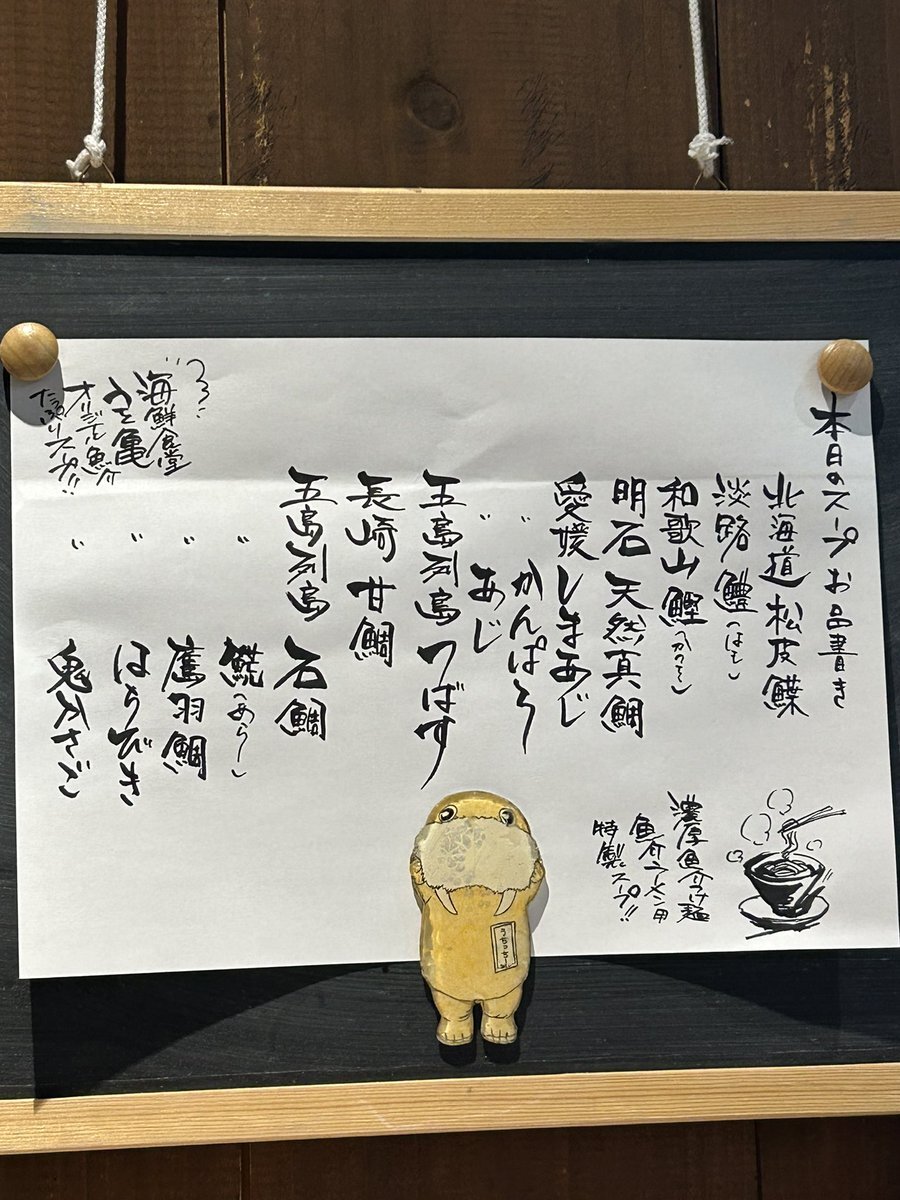 本日のスープお品書き
北海道 松皮鰈
淡路 鱧(はも)
和歌山 鰹(かつお)
明石 天然真鯛
愛媛 しまあじ
〃 かんぱち
〃 あじ
五島列島 つばす
長崎 甘鯛
五島列島 石鯛
〃 鯍(あら)
〃 鷹羽鯛
〃 ほうびき
〃 鬼カサゴ
濃厚魚介つけ麺
魚介ラーメン用
特製スープ!!
海鮮食堂
オリジナル魚介
たっぷりスープ!!
うちっちー